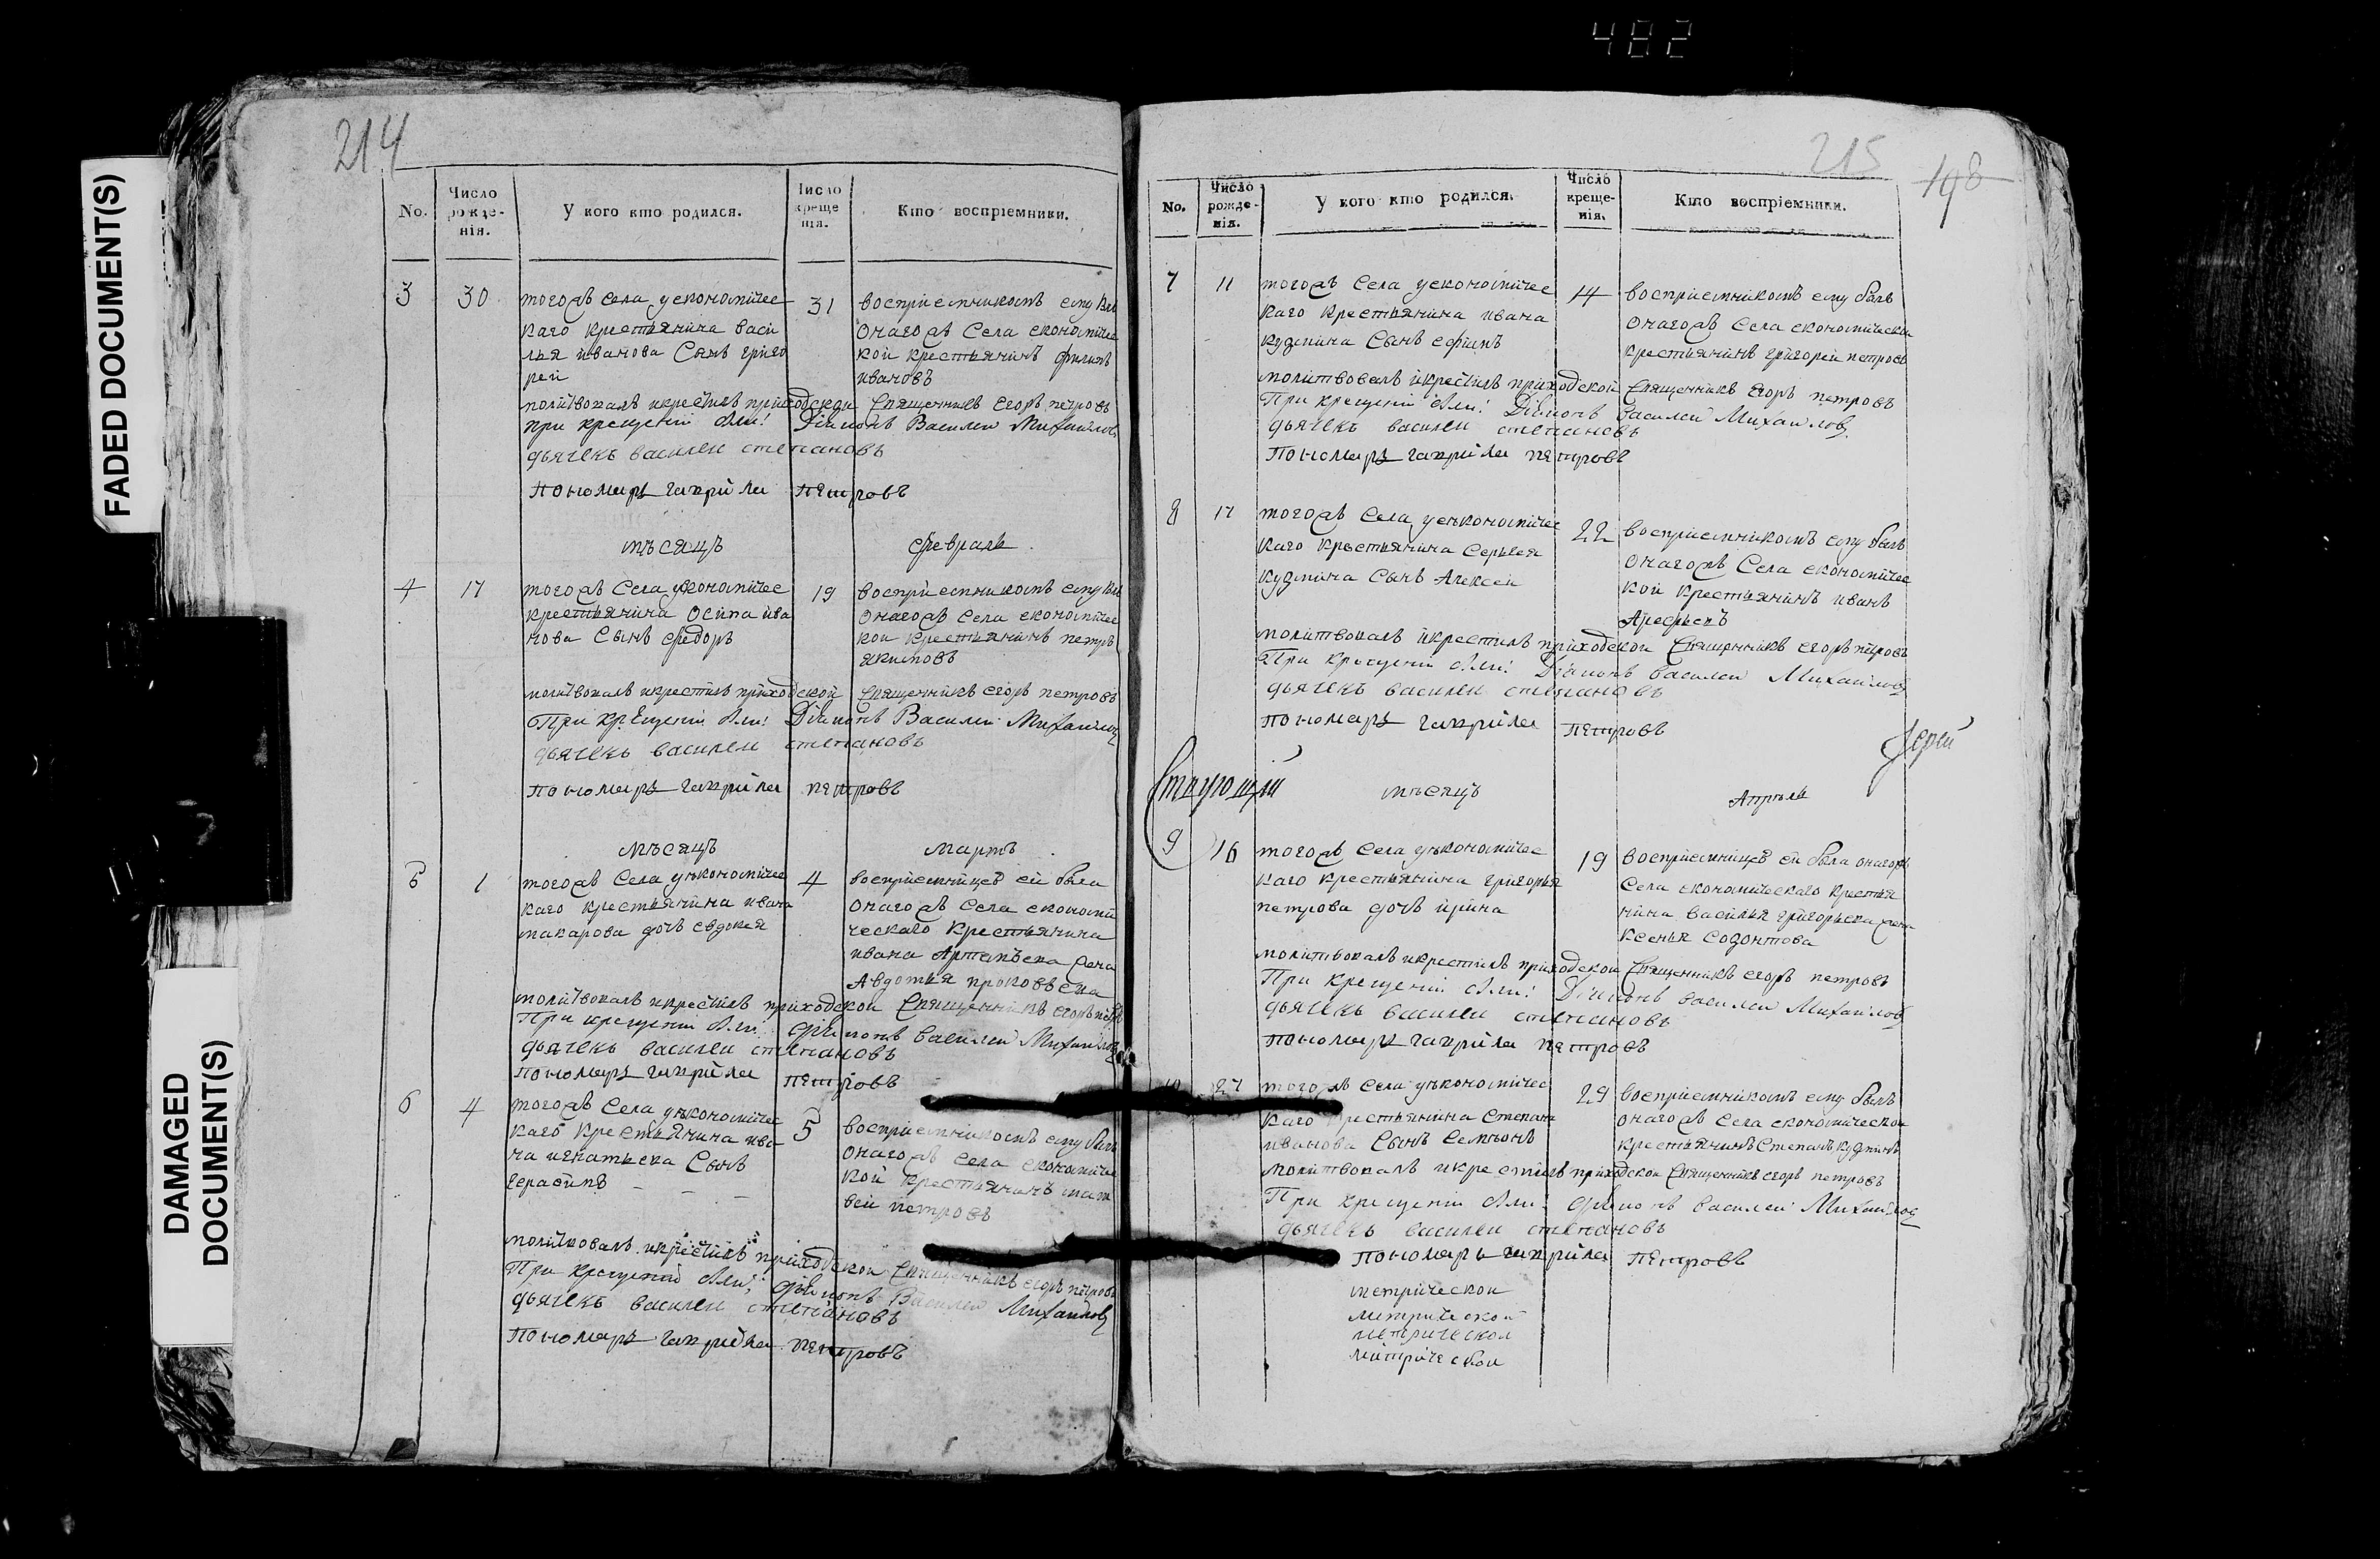 482
FADED DOCUMENT(S)
DAMAGED
DOCUMENT(S)
214
No.
Число
рожде-
нія.
У кого кто родился.
Число
креще
нія.
Кто воспріемники.
3
30
тогожъ села уекономичес
каго крестьянина васи
лья иванова сынъ григо
рей
31
восприемникомъ ему был
онагожъ села економиче
кой крестьянинъ филипъ
ивановъ
молитвовалъ икрестилъ приходской священникъ егоръ петровъ
при крещеніи были: Діаконъ Василей Михайловъ
дьячекъ василеи степановъ
пономарь гаврила петровъ
месяцъ февраль
4
17
тогожъ села уекономичес
крестьянина осипа ива
нова сынъ федоръ
19
восприемникомъ ему был
онагожъ села економиче
кой крестьянинъ петръ
якимовъ
молитвовалъ икрестилъ приходской священникъ егоръ петровъ
При крещеніи были: Діаконъ Василей Михайловъ
дьячекъ василеи степановъ
пономарь гаврила петровъ
месяцъ мартъ
5
1
тогожъ села уекономичес
каго крестьянина ивана
макарова дочь евдокея
4
восприемницеъ ей была
онагожъ села економи
ческаго крестьянина
ивана Артемьева жена
Авдотья прокофьева
молитвовалъ икрестилъ приходской священникъ егоръ петровъ
При крещеніи были: діаконъ Василей Михайловъ
дьячекъ василеи степановъ
пономарь гаврила петровъ
6
4
тогожъ села уекономичес
каго крестьянина ива
на игнатьева сынъ
герасимъ
5
восприемникомъ ему былъ
онагожъ села економиче
кой крестьянинъ мат
вей петровъ
молитвовалъ икрестилъ приходской священникъ егоръ петровъ
При крещеніи были: діаконъ Василей Михайловъ
дьячекъ василеи степановъ
пономарь гаврила петровъ
215
198
No.
Число
рожде-
нія.
У кого кто родился.
Число
креще-
нія.
Кто воспріемники.
7
11
тогожъ села уекономичес
каго крестьянина ивана
кузмина сынъ ефимъ
14
восприемникомъ ему былъ
онагожъ села економическои
крестьянинъ григореи петровъ
молитвовалъ икрестилъ приходской священникъ егоръ петровъ
При крещеніи были: Діаконъ василеи Михайловъ
дьячекъ василеи степановъ
пономарь гаврила петровъ
8
17
тогожъ села уекономичес
каго крестьянина сергея
кузмина сынъ Алексеи
22
восприемникомъ ему былъ
онагожъ села економичес
кой крестьянинъ иванъ
Арефьевъ
молитвовалъ икрестилъ приходской священникъ егоръ петровъ
При крещеніи были: Діаконъ василеи Михайловъ
дьячекъ василеи степановъ
пономарь гаврила петровъ
Іерей
месяцъ Апрель
9
16
тогожъ села уекономичес
каго крестьянина григорья
петрова дочь ирина
19
восприемницеъ ей была онагожъ
села економическаго крестья
нина василья григорьева жена
ксенья
молитвовалъ икрестилъ приходской священникъ егоръ петровъ
При крещеніи были: Діаконъ василеи Михайловъ
дьячекъ василеи степановъ
пономарь гаврила петровъ
10
27
тогожъ села уекономичес
каго крестьянина степана
иванова сынъ семионъ
29
восприемникомъ ему былъ
онагожъ села економическои
крестьянинъ степанъ кузминъ
молитвовалъ икрестилъ приходской священникъ егоръ петровъ
При крещеніи были: діаконъ василеи Михайловъ
дьячекъ василеи степановъ
пономарь гаврила петровъ
метрической
метрической
метрической
метрической